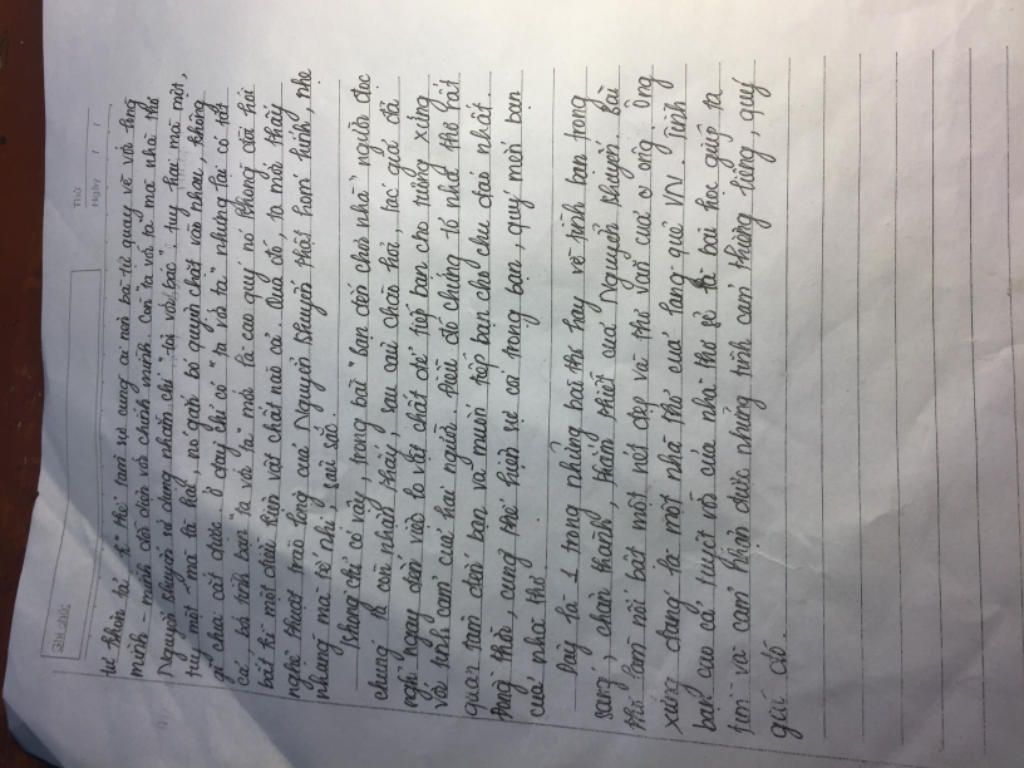 Thứ
Ngày / /
Ghi chú:
từ thôn tại, từ "thế tam sự cùng ai nói bà từ quay về với lòng
mình - mình đối diện với chính mình. Còn ta với ta mà nhà thơ
Nguyễn Khuyến sử dụng nhằm chỉ "tôi với bác", tuy hai mà một,
tuy một mà là hai, nó gắn bó quyện chặt vào nhau, không
gì chia cắt được. Ở đây chỉ có "ta với ta" nhưng lại có tất
cả, bà tình bạn "ta với ta" mới là cao quý nó không đòi hỏi
bất kì một điều kiện vật chất nào cả. Qua đó, ta mới thấy
nghệ thuật trào lộng của Nguyễn Khuyến thật hóm hỉnh, nhẹ
nhàng mà tế nhị, sâu sắc.
Không chỉ có vậy, trong bài "bạn đến chơi nhà", người đọc
chúng ta còn nhận thấy, sau câu chào hỏi, tác giả đã
nghĩ ngay đến việc lo vật chất để tiếp bạn cho tương xứng
với tình cảm của hai người. Điều đó chứng tỏ nhà thơ rất
quan tâm đến bạn và muốn tiếp bạn cho chu đáo nhất.
Đồng thời, cũng thể hiện sự coi trọng bạn, quý mến bạn
của nhà thơ.
Đây là 1 trong những bài thơ hay về tình bạn trong
sáng, chân thành, thắm thiết của Nguyễn Khuyến. Bài
thơ làm nổi bật một nét đẹp và thi văn của ở ông. Ông
xứng đáng là một nhà thơ của làng quê VN. Tình
bạn cao cả tuyệt vời của nhà thơ sẽ là bài học giúp ta
tìm và cảm nhận được những tình cảm thiêng liêng, quý
giá đó.